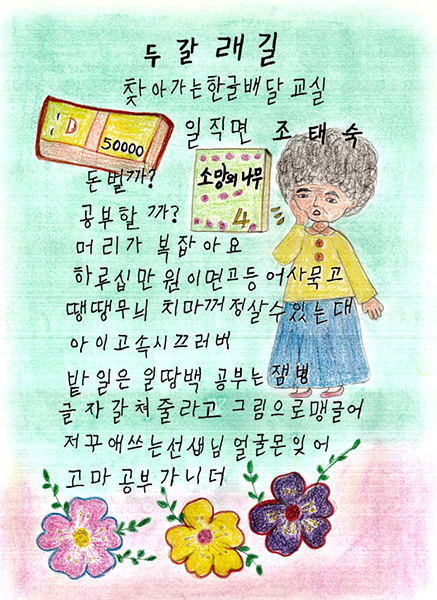 두갈래길
찾아가는한글배달교실
일직면 조태숙
D
50000
소망의나무
4
돈벌까?
공부할까?
머리가 복잡아요
하루십만원이면고등어사묵고
땡땡무늬 치마꺼정살수있는대
아이고속시끄러버
밭일은 일땅백 공부는잼병
글자갈쳐줄라고 그림으로맹글어
저꾸애쓰는선생님얼굴몬잊어
고마공부가니더